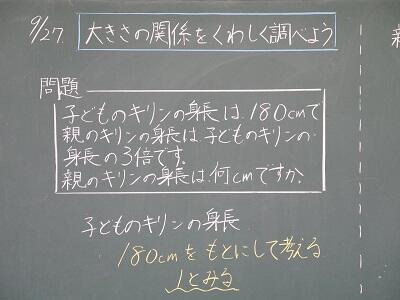 9/27. 大きさの関係をくわしく調べよう
問題
子どものキリンの身長は、180cmで
親のキリンの身長は、子どものキリンの
身長の3倍です。
親のキリンの身長は、何cmですか。
子どものキリンの身長
180cmをもとにして考える
1とみる